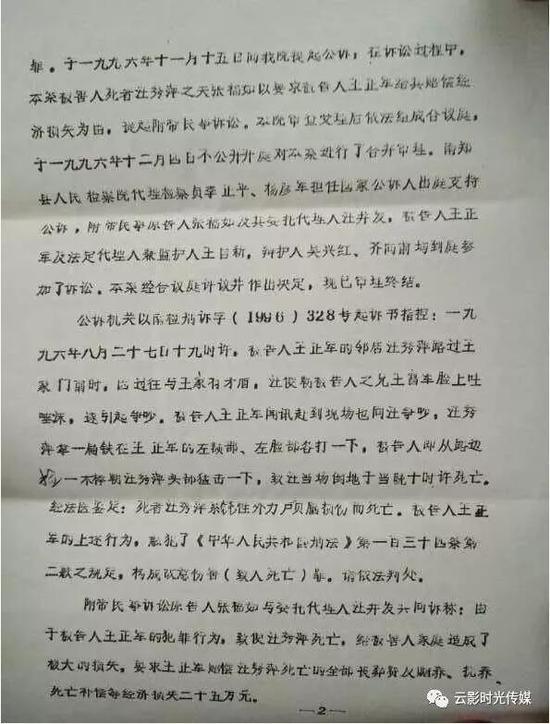 罪。于一九九六年十一月十五日向我院提起公诉，在诉讼过程中，
本案被害人死者汪秀萍之夫张福如以要求被告人王正军给其赔偿经
济损失为由，提起附带民事诉讼。本院审查受理后依法组成合议庭，
于一九九六年十二月四日不公开开庭对本案进行了合并审理。南郑
县人民检察院代理检察员李正平、杨彦军担任国家公诉人出庭支持
公诉，附带民事原告人张福如及其委托代理人汪开发，被告人王正
军及法定代理人兼监护人王自新，辩护人吴兴红、齐向前均到庭参
加了诉讼。本案经合议庭评议并作出决定，现已审理终结。
公诉机关以南检刑诉字（1996）328号起诉书指控：一九
九六年八月二十七日十九时许，被告人王正军的邻居汪秀萍路过王
家门前时，因过往与王家有矛盾，汪便朝被告人之兄王富军脸上吐
唾沫，遂引起争吵。被告人王正军闻讯赶到现场也同汪争吵，汪秀
萍拿一扁铁在王正军的左额部、左脸部各打一下，被告人即从路边
一木棒朝汪秀萍头部猛击一下，致汪当场倒地于当晚十时许死亡。
经法医鉴定：死者汪秀萍系钝性外力 颅脑损伤而死亡。被告人王正
军的上述行为，触犯了《中华人民共和国刑法》第一百三十四条第
二款之规定，构成故意伤害（致人死亡）罪。请依法判处。
附带民事诉讼原告人张福如与委托代理人汪开发共同诉称：由
于被告人王正军的犯罪行为，致使汪秀萍死亡，给被害人家庭造成了
极大的损失，要求王正军赔偿汪秀萍死亡的全部丧葬费及赡养、抚养、
死亡补偿等经济损失二十五万元。
—2—
云影时光传媒